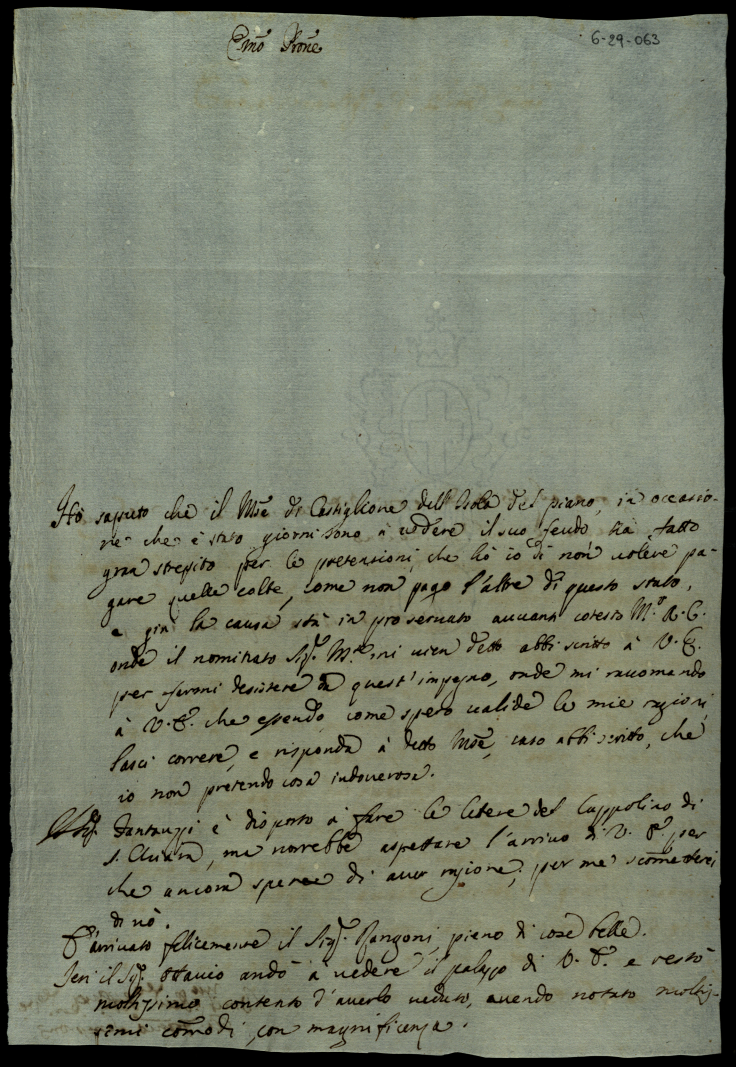 6-29-063
Emo Prone
Hò saputo che il Mse di Castiglione dell'Isola del piano, in occasio-
ne che è stato giorni sono à vedere il suo feudo hà fatto
gran strepito per le pretensioni, che hò io di non volere pa-
gare quelle colte, come non pago l'altre di questo stato,
e già la causa stà in proseruato auuanti cotesto M.r R. C.
onde il nominato Sig.r M.se mi vien detto abbi scritto à V. E.
per farmi desistere da quest'impegno, onde mi raccomando
à V. E. che essendo, come spero ualide le mie ragioni,
lasci correre, e risponda à detto Mse, caso abbi scritto, che
io non pretendo cosa indouerosa.
Il Sig.r Fantuzzi è disposto à fare le lettere del Cuppolino di
S. Chiara, ma vorrebbe aspettare l'arriuo di V. E. per
che ancora spera di auer ragione, per me scometterei
di nò.
E' arriuato felicemente il Sig.r Rangoni, pieno di cose belle.
Ieri il Sig.r Ottauio andò à vedere il palazzo di V. E. e restò
moltissimo contento d'auerlo ueduto, auendo notato moltis-
simi comodi, con magnificenza.